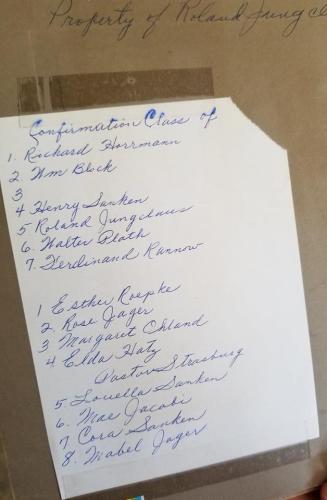 Property of Roland Jungcl
Confirmation Class of
1. Richard Horrmann
2. Wm Block
3
4 Henry Sunken
5 Roland Jungclaus
6. Walter Plath
7. Ferdinand Rannow
1 Esther Roepke
2. Rose Jager
3 Margaret Ohland
4 Elda Hatz
Pastor Strasburg
5. Louella Sunken
6. Mae Jacobi
7 Cora Sunken
8. Mabel Jager